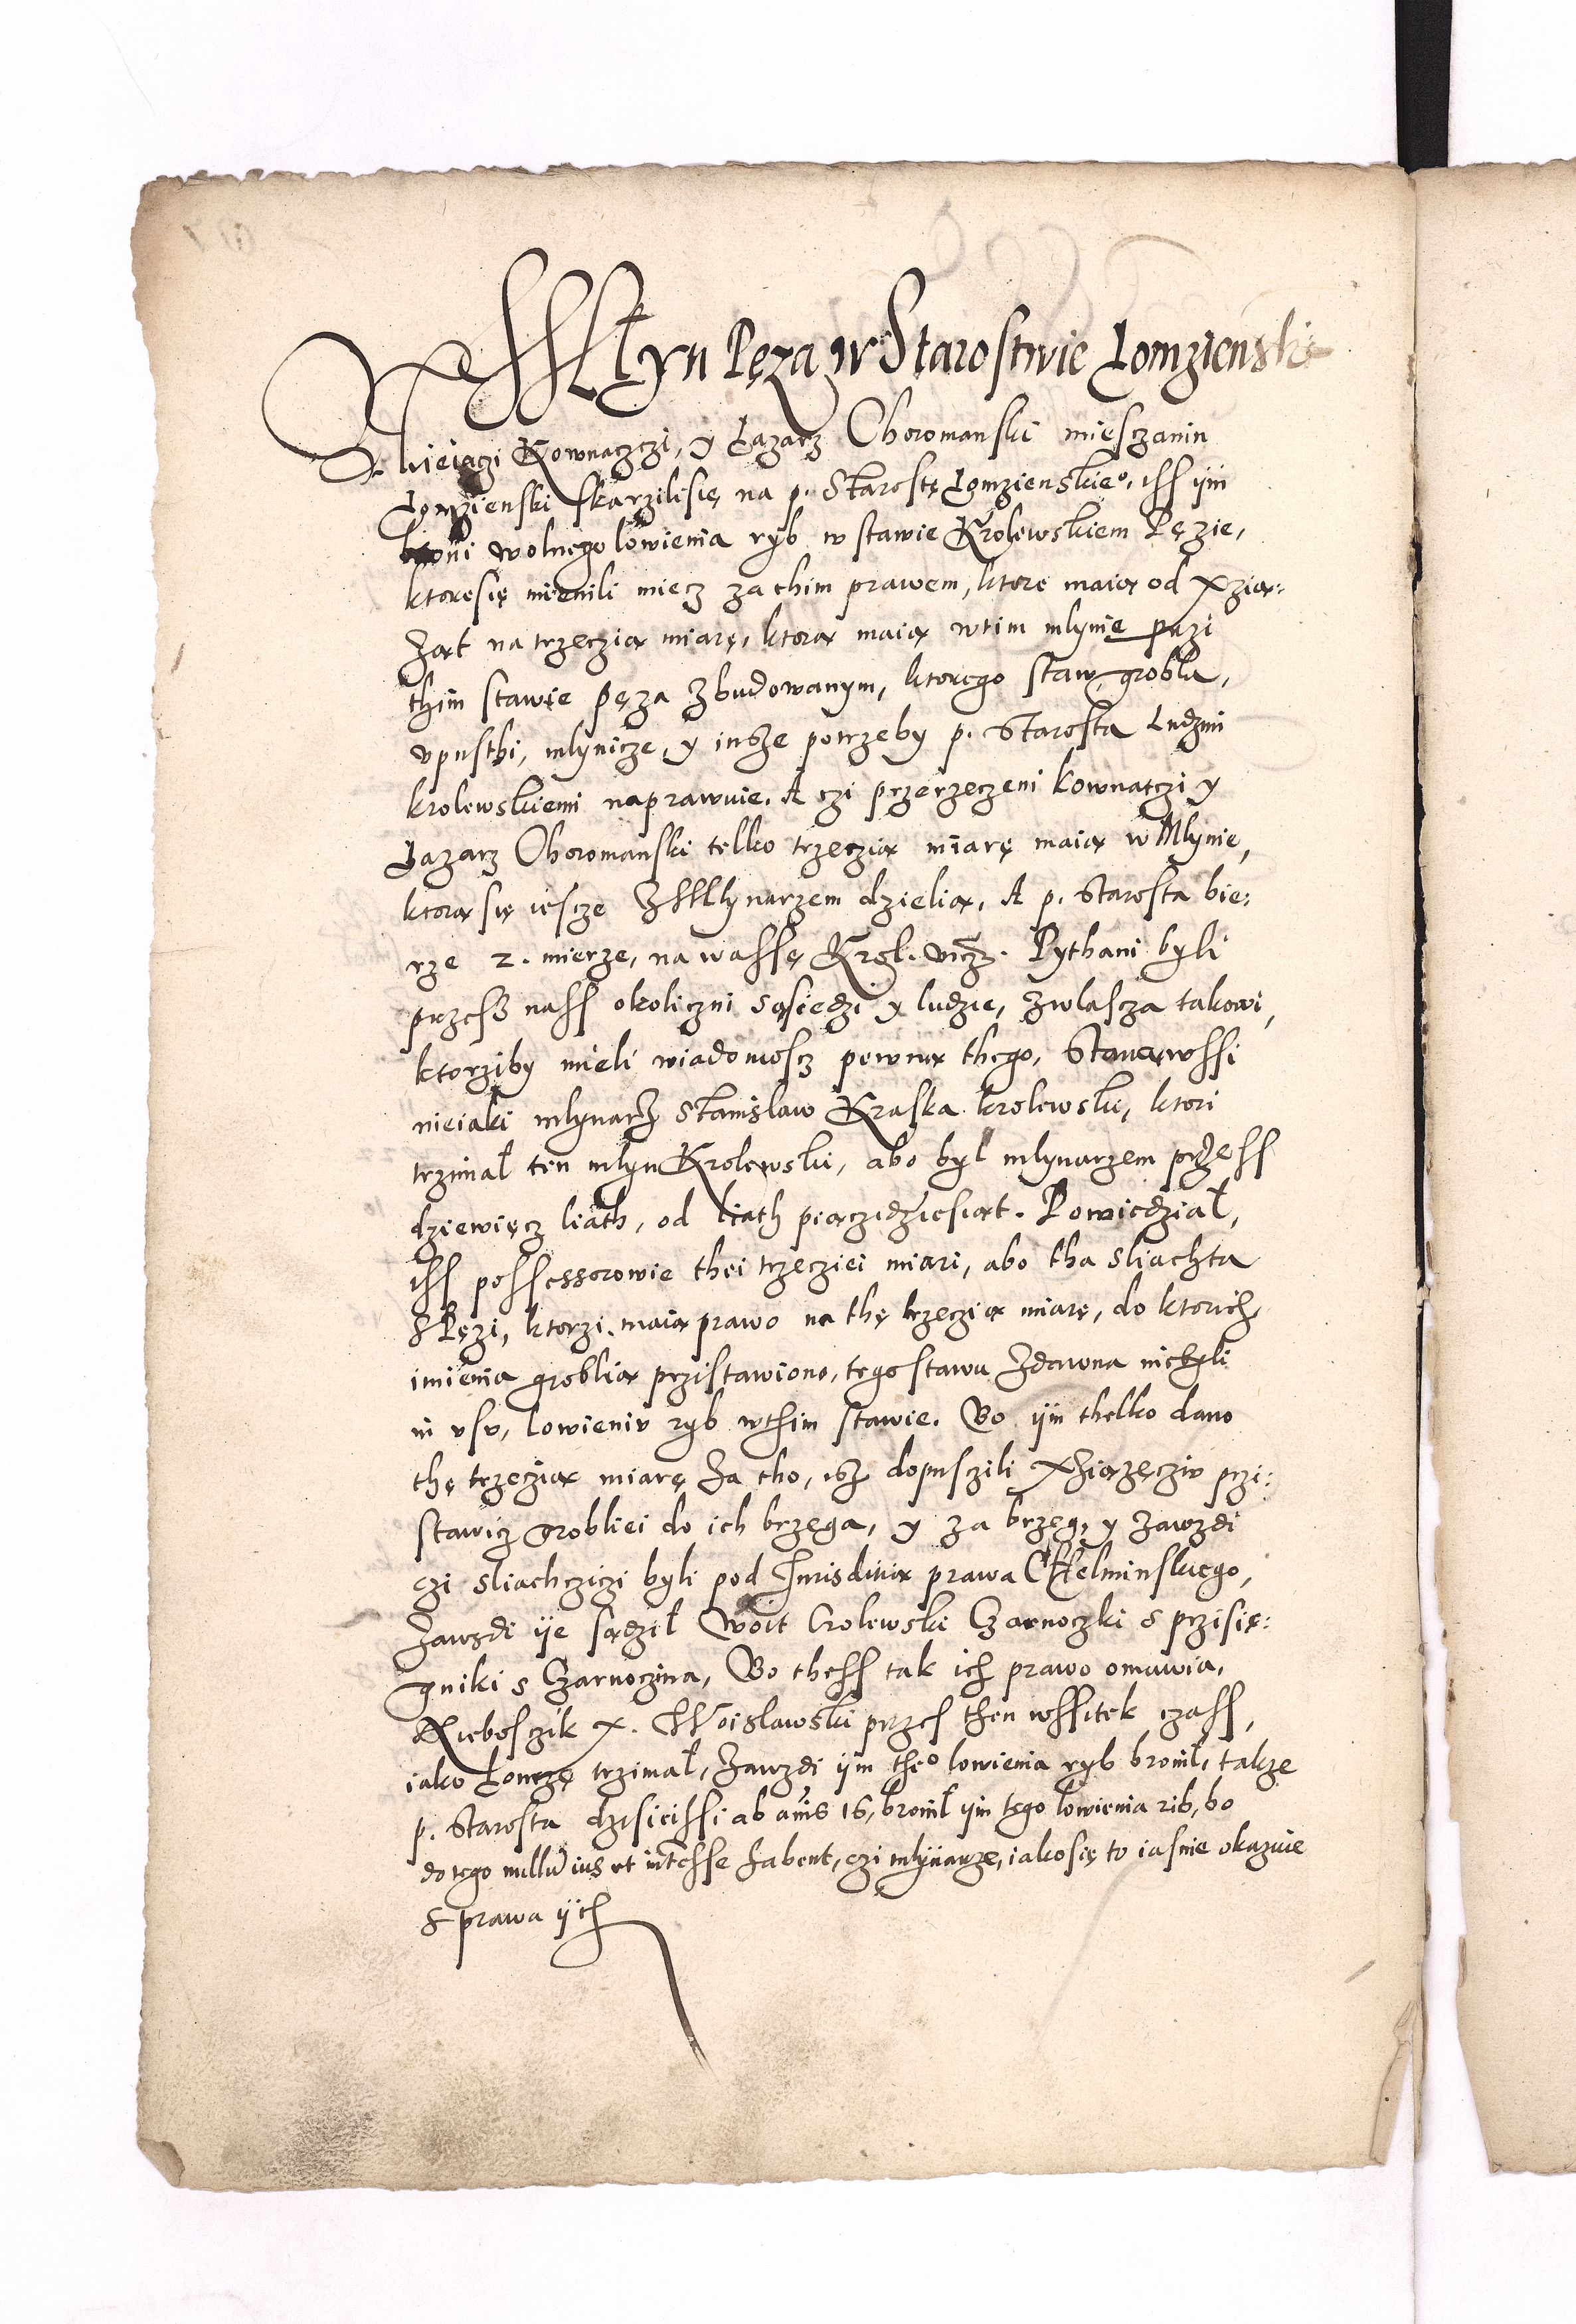 Młyn Pęza w Starostwie Łomzienskie
Nieiaczi Kownaczczi, y Łazarz Choromanski miesczanin
Łomzienski skarzilisię na p. Starostę Łomzienskieo, iss ijm
broni wolnego lowienia ryb w stawie Krolewskiem Pęzie,
ktoresię mienili miecz za thim prawem, ktore maią od Xzią:
ząt na trzeczią miarę, ktorą maią wtim mlynie przi
thim stawie pęza zbudowanym, ktorego staw, grobla,
vpustki, mlynicze, y insze potrzeby p. Starosta ludzmi
krolewskiemi naprawuie. A czi przerzeczeni kownatczi y
Łazarz Choromanski telko trzeczią miarę maią w Mlynie,
ktorą się iescze z Mlynarzem dzielią, A p. Starosta bie:
rze 2. mierze, na wassę Krol. Pythani byli
przesz nass okoliczni sąsiedzi y ludzie, zwlascza takowi,
ktorziby mieli wiadomoscz pewną thego, Stanąwssi
nieiaki mlynarz Stanislaw Kraska krolewski, ktori
trzimał ten mlyn Krolewski, abo był mlynarzem przess
dziewięcz liath, od liath piąćzidziesiąt. Powiedział,
iss possessorowie thei trzecziei miari, abo tha sliachta
s Pęzi, ktorzi maią prawo na thę trzeczią miarę, do ktorich
imienia groblią przistawiono, tego stawu zdawna niebyli
in vsu, lowieniu ryb wthim stawie. Bo ijm thelko dano
thę trzeczią miarę za tho, isz dopusczili Xziązęcziu przi:
stawicz grobliei do ich brzega, y za brzeg, y zawzdi
czi sliachczici byli pod Jurisditią prawa Chelminskiego,
zawsdi ije sądził Woit Crolewski Czarnoczki s przisię:
gniki s Czarnoczina, Bo thess tak ich prawo omawia,
Nieboszik X. Woislawski przes then wssitek czass,
iako Łomzę trzimał, zawzdi ijm theo lowienia ryb bronił, takze
p. Starosta dzisieissi ab annis 16, bronił ijm tego lowienia rib, bo
do tego nullum ius et interesse habent, czi mlynarze, iakosię to iasnie okazuie
s prawa ijch